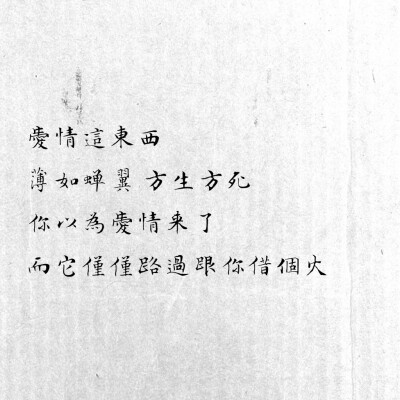 愛情這東西
薄如蝉翼 方生方死
你以為愛情来了
而它僅僅路過跟你借個火